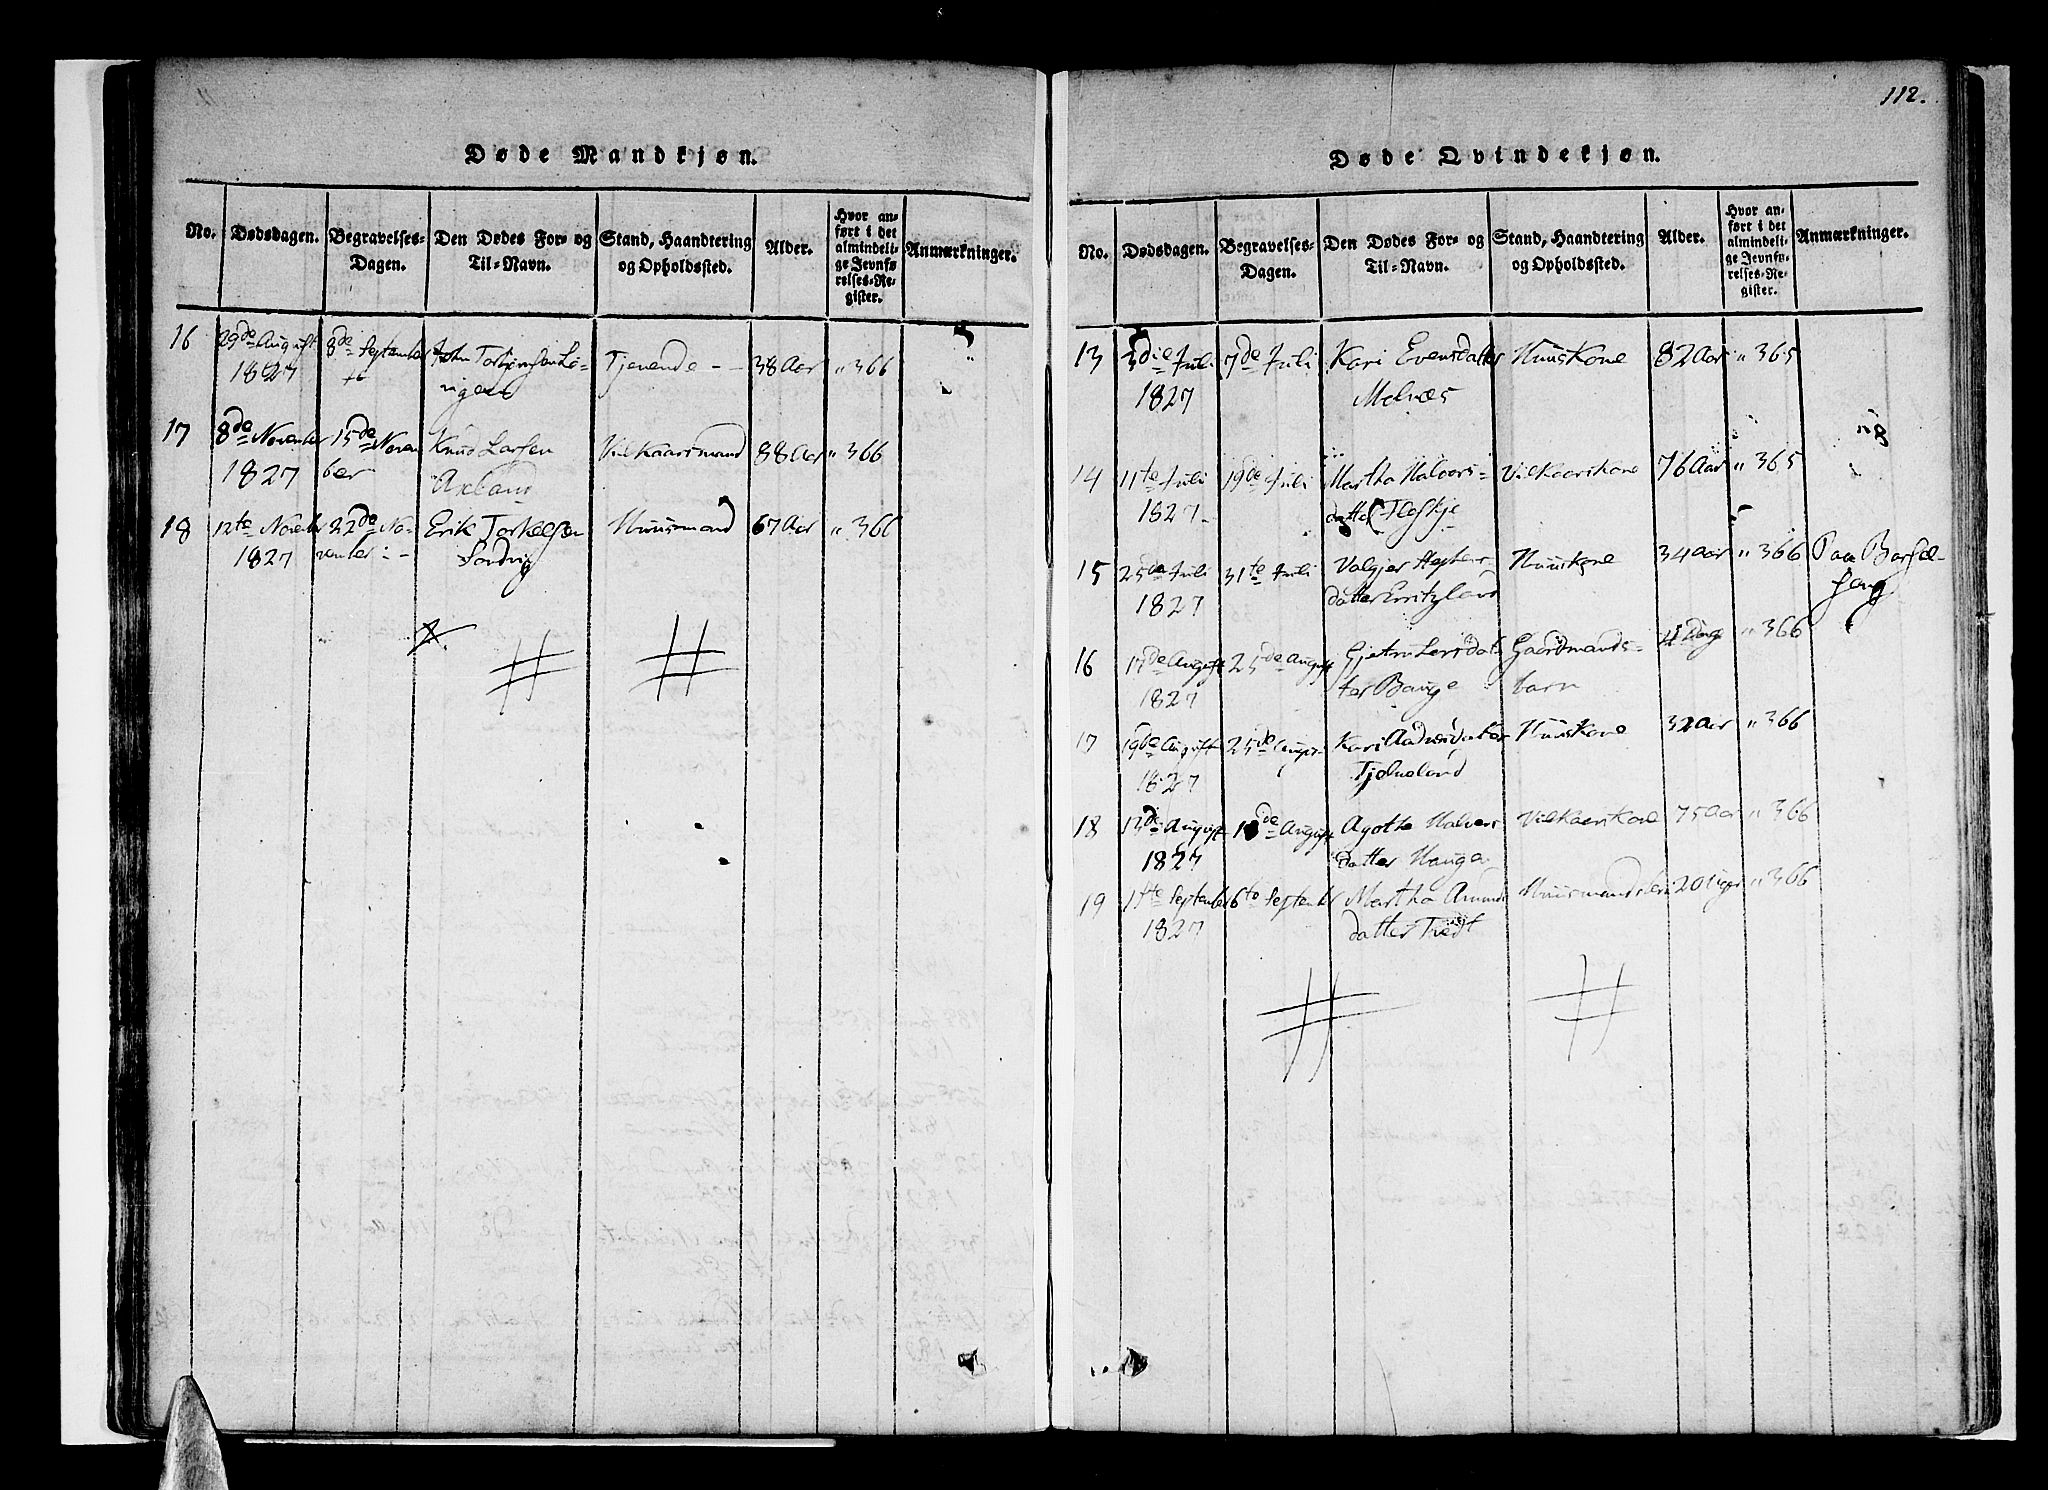 112.
Døde Mandkjøn.
No. Dødsdagen. Begravelses-Dagen. Den Dødes For- og Til-Navn. Stand, Haandtering og Opholdssted. Alder. Hvor anført i det almindelige Jevnførelses-Register. Anmærkninger.
16 29de August 8de September John Torkjersen Tjenende - - 38 Aar " 366
1827
17 8de November 15de Novem Knud Larsen Vilkaarsmand 88 Aar " 366
1827 ber Axland
18 12te November 22de No- Erik Torkelsen Huusmand 67 Aar " 366
1827 vember Sandvig
Døde Qvindekjøn.
No. Dødsdagen. Begravelses-Dagen. Den Dødes For- og Til-Navn. Stand, Haandtering og Opholdssted. Alder. Hvor anført i det almindelige Jevnførelses-Register. Anmærkninger.
13 3die Juli 7de Juli Kari Evensdatter Huuskone 82 Aar " 365
1827 Melvæs
14 11te Juli 19de Juli Martha Halvors- Vilkaarskone 76 Aar " 365
1827 datter Floskje
15 25de Juli 31te Juli Valgjer Huuskone 34 Aar " 366 Paa Barsel-
1827 datter seng
16 17de August 25de August Larsdat Gaardmands-
" 366
1827 ter Bauge barn
17 19de August 25de August Kari Huuskone 32 Aar " 366
1827 Tjelveland
18 13de August 18de August Agathe Halvors Vilkaarskone 75 Aar " 366
1827 datter Haugen
19 1te September 6te September Martha Amunds Huusmandsbarn 20 Uger " 366
1827 datter Tvedt